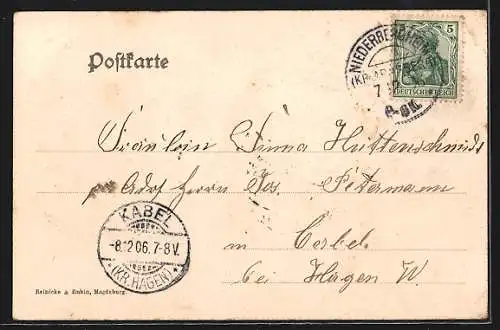 Postkarte
NIEDERBERGHEIM
5
DEUTSCHES REICH
7
8-9N.
Fräulein Anna Hüttenschmidt
Adr. Herrn Jos. Petermann
in
bei Hagen W.
KABEL
-8.12.06.7-8V.
*(KR.HAGEN)*
Reinicke & Rubin, Magdeburg.